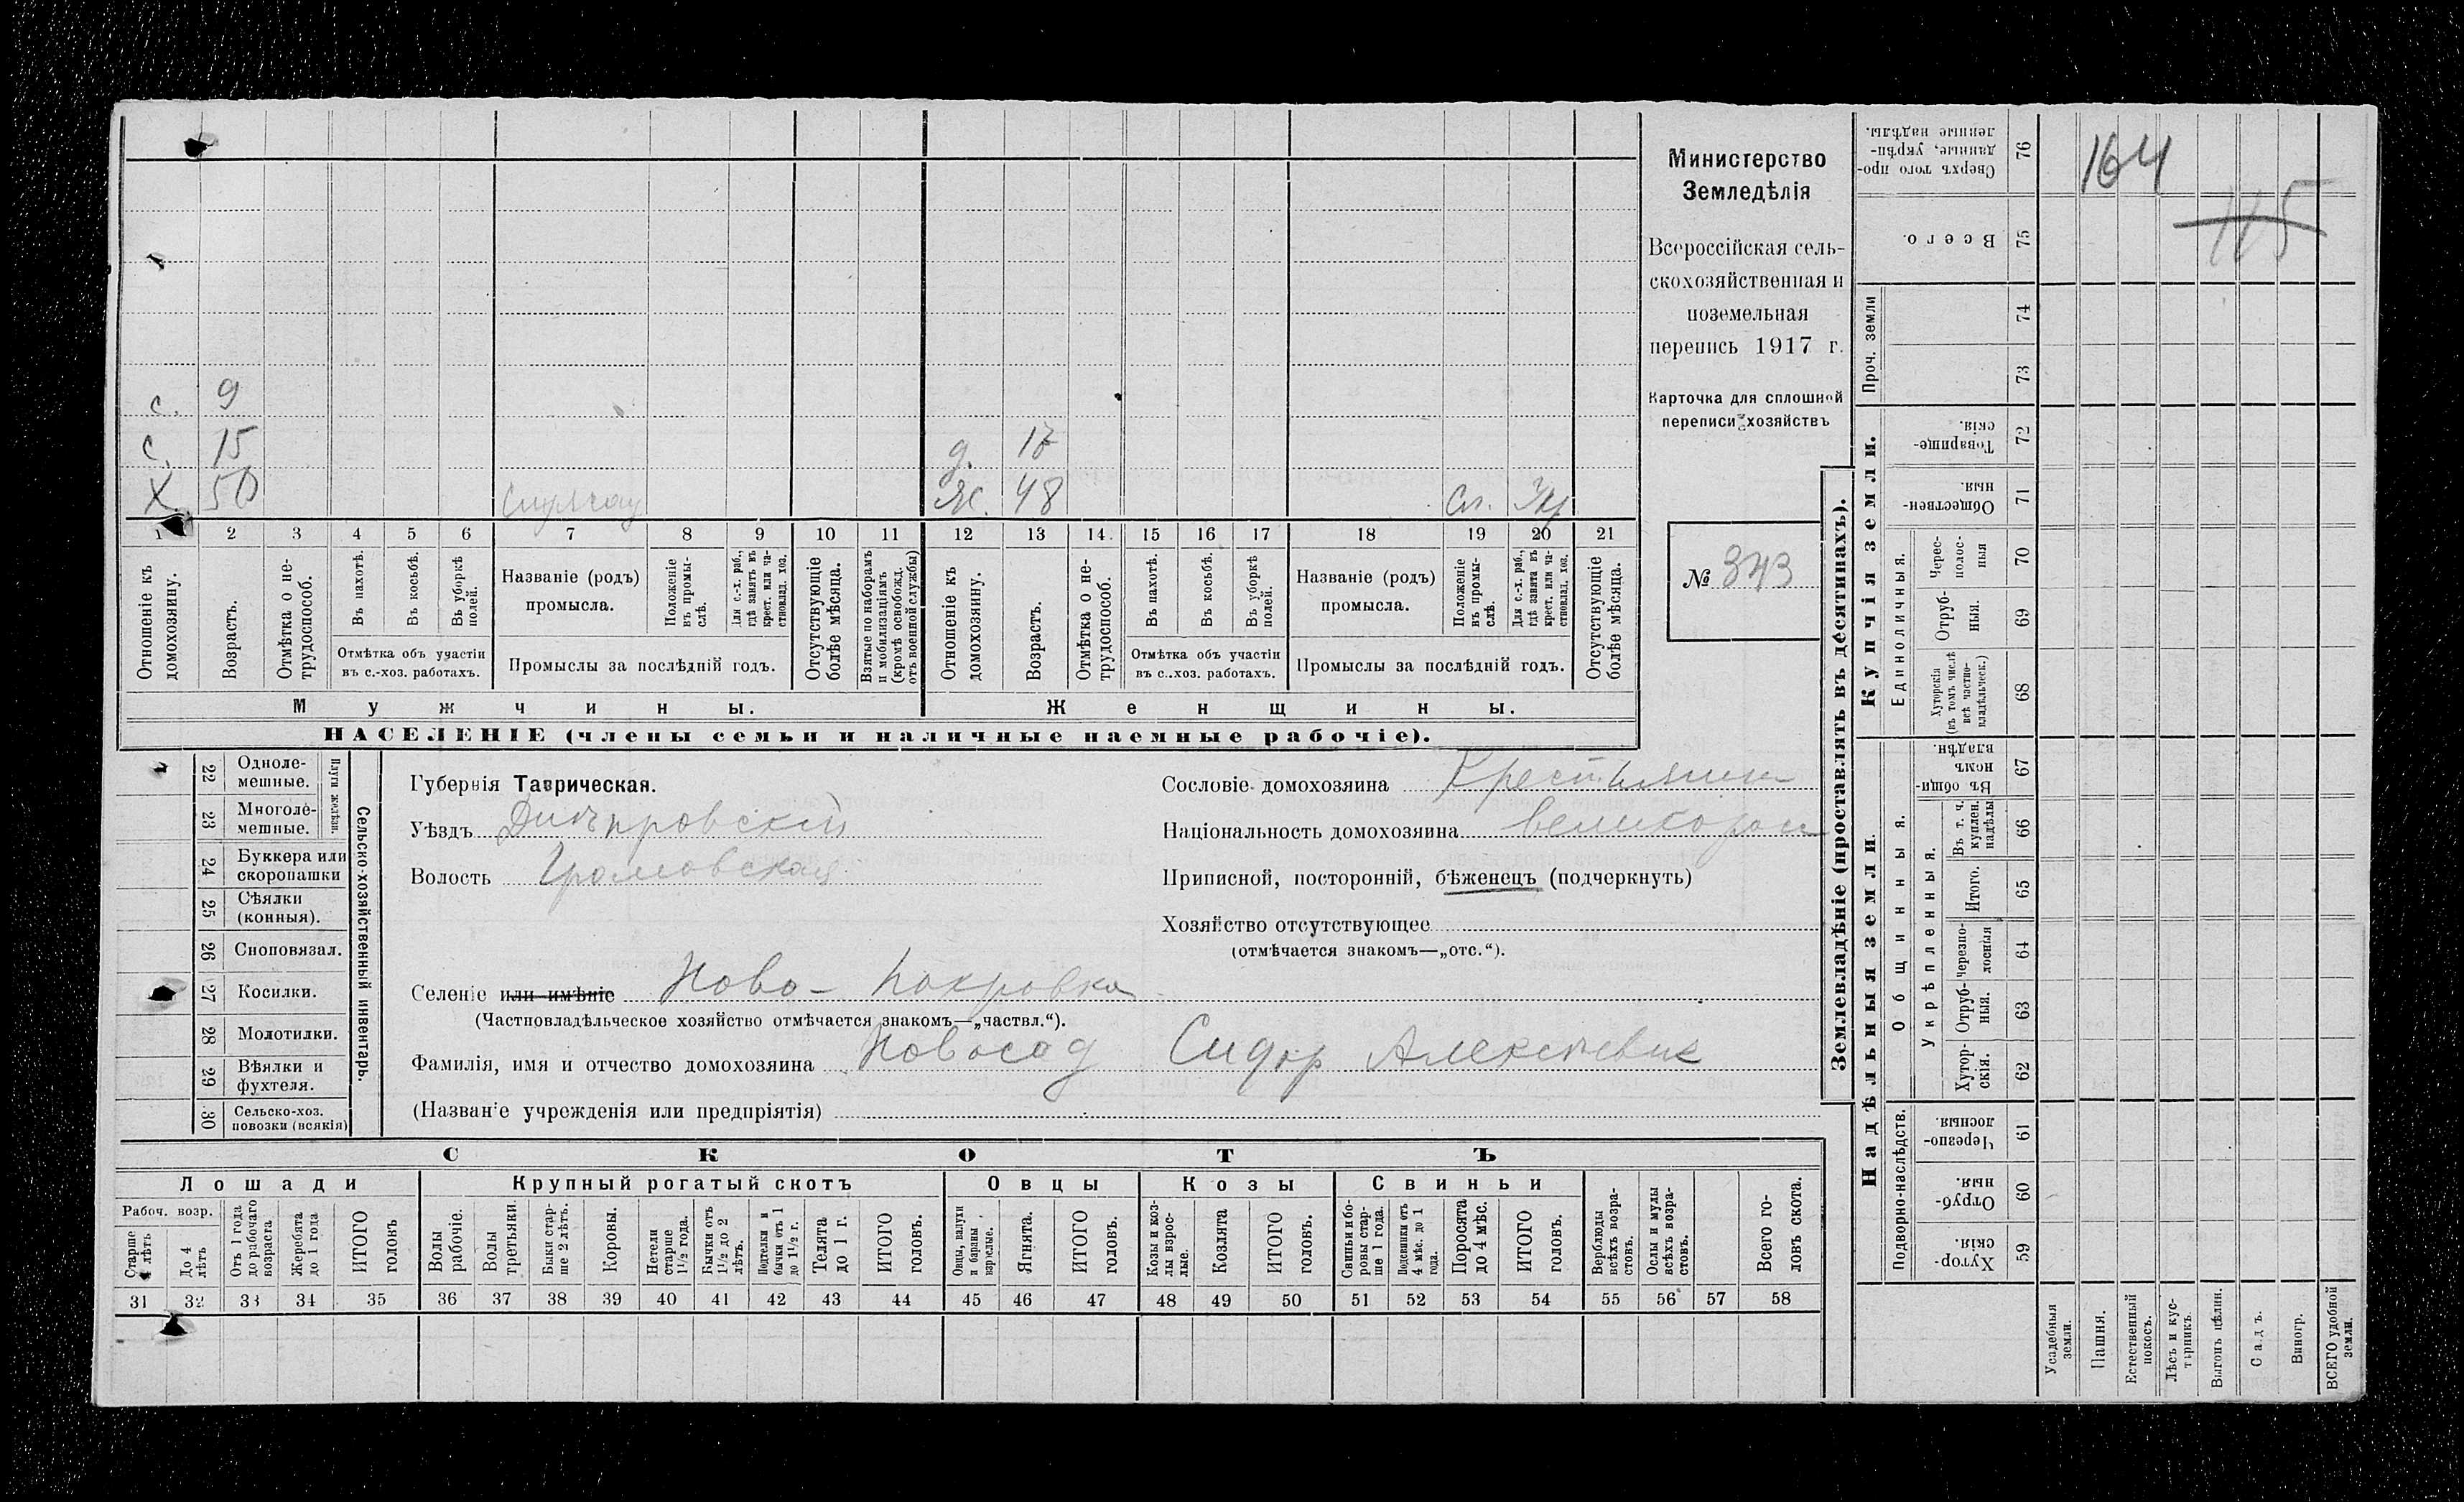 с. 9
с. 15 д. 17
Х 50 Ж. 48 Сл.
1 2 3 4 5 6 7 8 9 10 11 12 13 14 15 16 17 18 19 20 21
Отношеніе къ домохозяину.
Возрастъ.
Отмѣтка о не-
трудоспособ.
Въ пахотѣ.
Въ косьбѣ.
Въ уборкѣ полей.
Отмѣтка объ участіи
въ с.-хоз. работахъ.
Названіе (родъ)
промысла.
Положеніе въ промы-
слѣ.
Для с.-х. раб.,
гдѣ занятъ въ
крест. или ча-
стновлад. хоз.
Промыслы за послѣдній годъ.
Отсутствующіе
болѣе мѣсяца.
Взятые по наборамъ
и мобилизаціямъ
(кромѣ освобожд.
отъ военной службы)
Отношеніе къ
домохозяину.
Возрастъ.
Отмѣтка о не-
трудоспособ.
Въ пахотѣ.
Въ косьбѣ.
Въ уборкѣ
полей.
Отмѣтка объ участіи
въ с..хоз. работахъ.
Названіе (родъ)
промысла.
Положеніе
въ промы-
слѣ.
Для с.-х. раб.,
гдѣ занята въ
крест. или ча-
стновлад. хоз.
Промыслы за послѣдній годъ.
Отсутствующіе
болѣе мѣсяца.
Мужчины. Женщины.
НАСЕЛЕНІЕ (члены семьи и наличные наемные рабочіе).
Министерство
Земледѣлія
Всероссійская сель-
скохозяйственная и
поземельная
перепись 1917 г.
Карточка для сплошной
переписи хозяйствъ
№ 343
22 Одноле-
мешные.
23 Многоле-
мешные.
Плуги желѣзн.
24 Буккера или
скоропашки
25 Сѣялки
(конныя).
26 Сноповязал.
27 Косилки.
28 Молотилки.
29 Вѣялки и
фухтеля.
30 Сельско-хоз.
повозки (всякія)
Сельско-хозяйственный инвентарь.
Губернія Таврическая.
Уѣздъ Днѣпровскій
Волость Громовская
Селеніе или имѣніе Ново-Покровка
(Частновладѣльческое хозяйство отмѣчается знакомъ—„частвл.“).
Фамилія, имя и отчество домохозяина Новосад Сидор Алексѣевич
(Названіе учрежденія или предпріятія)
Сословіе домохозяина Крестьянин
Національность домохозяина великоросс
Приписной, посторонній, бѣженецъ (подчеркнуть)
Хозяйство отсутствующее
(отмѣчается знакомъ—„отс.“).
СКОТЪ
Лошади Крупный рогатый скотъ Овцы Козы Свиньи
Рабоч. возр.
Старше 4 лѣтъ
До 4 лѣтъ
Отъ 1 года
до рабочаго
возраста
Жеребята
до 1 года
ИТОГО
головъ
Волы
рабочіе.
Волы
третьяки.
Быки стар-
ше 2 лѣтъ.
Коровы.
Нетели
старше
1½ года.
Бычки отъ
1½ до 2
лѣтъ.
Подтелки и
бычки отъ 1
до 1½ г.
Телята
до 1 г.
ИТОГО
головъ.
Овцы, валухи
и бараны
взрослые.
Ягнята.
ИТОГО
головъ.
Козы и коз-
лы взрос-
лые.
Козлята
ИТОГО
головъ.
Свиньи и бо-
ровы стар-
ше 1 года.
Подсвинки отъ
4 мѣс. до 1
года.
Поросята
до 4 мѣс.
ИТОГО
головъ.
Верблюды
всѣхъ возра-
стовъ.
Ослы и мулы
всѣхъ возра-
стовъ.
Всего го-
ловъ скота.
31 32 33 34 35 36 37 38 39 40 41 42 43 44 45 46 47 48 49 50 51 52 53 54 55 56 57 58
Землевладѣніе (проставлять въ десятинахъ).
Сверхъ того про-
данные, укрѣп-
ленные надѣлы.
76
164
Всего.
75
115
Проч. земли
74
73
Купчія земли.
Товарище-
скія.
72
Обществен-
ныя.
71
Единоличныя.
Черес-
полос-
ныя
70
Отруб-
ныя.
69
Хуторскія
(въ томъ числѣ
всѣ частно-
владѣльческ.)
68
Надѣльныя земли.
Общинныя.
Въ общин-
номъ
владѣн.
67
Укрѣпленныя.
Въ т. ч.
куплен.
надѣлы
66
Итого.
65
Черезпо-
лосныя
64
Отруб-
ныя.
63
Хутор-
скія.
62
Подворно-наслѣдств.
Черезпо-
лосныя.
61
Отруб-
ныя.
60
Хутор-
скія.
59
Усадебныя
земли.
Пашня.
Естественный
покосъ.
Лѣсъ и кус-
тарникъ.
Выгонъ цѣлин.
Садъ.
Виногр.
ВСЕГО удобной
земли.